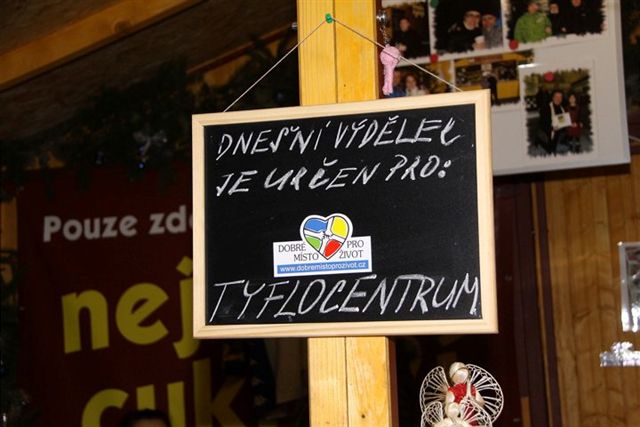 DNEŠNÍ VÝDĚLEK
JE URČEN PRO:
DOBRÉ PRO
MÍSTO ŽIVOT
www.dobremistoprozivot.cz
TYFLOCENTRUM
Pouze
nej
cuk